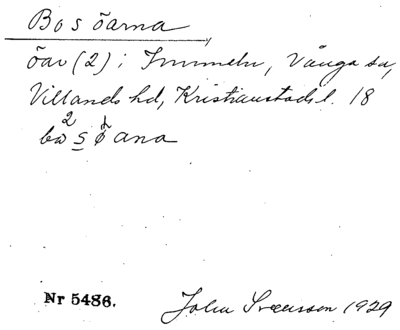 Bosöarna
öar (2) i Immeln, Vånga sn,
Villands hd, Kristianstads l. 18
bo²söana
Nr 5486.
John Svensson 1929